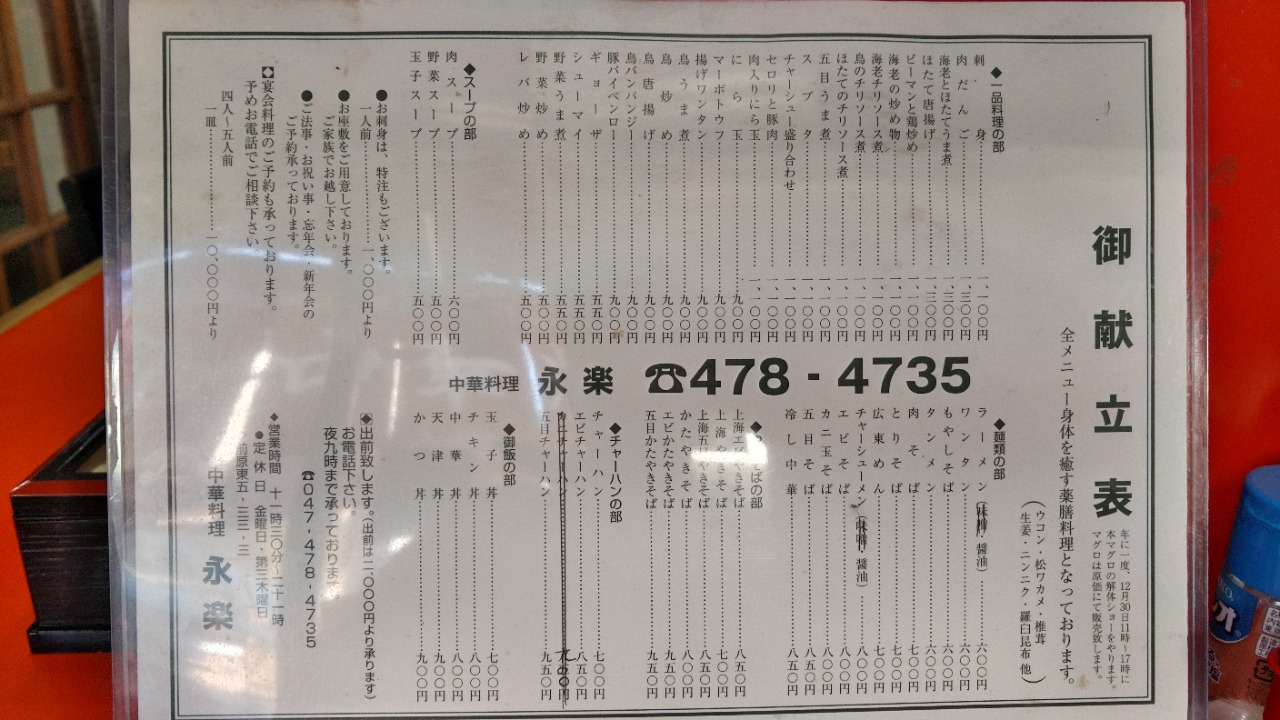 御献立表
年に一度、12月30日11時～17時に
本マグロの解体ショーをやります。
マグロは原価にて販売致します。
全メニュー身体を癒す薬膳料理となっております。
(ウコン・松ワカメ・椎茸
生姜・ニンニク・羅臼昆布 他)
◆一品料理の部
刺身 一、一〇〇円
肉だんご 一、三〇〇円
海老とほたてうま煮 一、三〇〇円
ほたて唐揚げ 一、三〇〇円
ピーマンと鶏炒め 一、一〇〇円
海老の炒め物 一、一〇〇円
海老チリソース煮 一、一〇〇円
鳥のチリソース煮 一、一〇〇円
ほたてのチリソース煮 一、一〇〇円
五目うま煮 一、一〇〇円
スブタ 一、一〇〇円
チャーシュー盛り合わせ 一、一〇〇円
セロリと豚肉 一、一〇〇円
肉入りにら玉 一、一〇〇円
にら玉 九〇〇円
マーボトウフ 九〇〇円
揚げワンタン 九〇〇円
鳥うま煮 九〇〇円
鳥炒め 九〇〇円
鳥唐揚げ 九〇〇円
鳥バンバンジー 九〇〇円
豚パイペンロー 九〇〇円
ギョーザ 五五〇円
シューマイ 五五〇円
野菜うま煮 五五〇円
野菜炒め 五〇〇円
レバ炒め 五〇〇円
◆スープの部
肉スープ 六〇〇円
野菜スープ 五〇〇円
玉子スープ 五〇〇円
●お刺身は、特注もございます。
一人前 一、〇〇〇円より
●お座敷をご用意しております。
ご家族でお越し下さい。
●ご法事・お祝い事・忘年会・新年会の
ご予約承っております。
◆宴会料理のご予約も承っております。
予めお電話でご相談下さい。
四人～五人前
一皿 一〇、〇〇〇円より
中華料理 永楽 ☎478-4735
◆麺類の部
ラーメン(味噌・醤油) 六〇〇円
ワンタン 六〇〇円
タンメン 六〇〇円
もやしそば 六〇〇円
肉そば 七〇〇円
とりそば 七〇〇円
広東めん 七〇〇円
チャーシューメン(味噌・醤油) 八〇〇円
エビそば 八〇〇円
カニ玉そば 八五〇円
五目そば 八五〇円
冷し中華 八五〇円
そばの部
上海エビやきそば 八五〇円
上海やきそば 七〇〇円
上海五目やきそば 八五〇円
かたやきそば 八〇〇円
エビかたやきそば 九五〇円
五目かたやきそば 九五〇円
◆チャーハンの部
チャーハン 七〇〇円
エビチャーハン 八五〇円
カニチャーハン
五目チャーハン 九五〇円
◆御飯の部
玉子丼 七〇〇円
チキン丼 八〇〇円
中華丼 八〇〇円
天津丼 九〇〇円
かつ丼 九〇〇円
◆出前致します。(出前は二〇〇〇円より承ります)
お電話下さい。
夜九時まで承っております。
☎047-478-4735
◆営業時間 十一時三〇分～二十一時
●定休日 金曜日・第三木曜日
前原東五・三三・三
中華料理 永楽